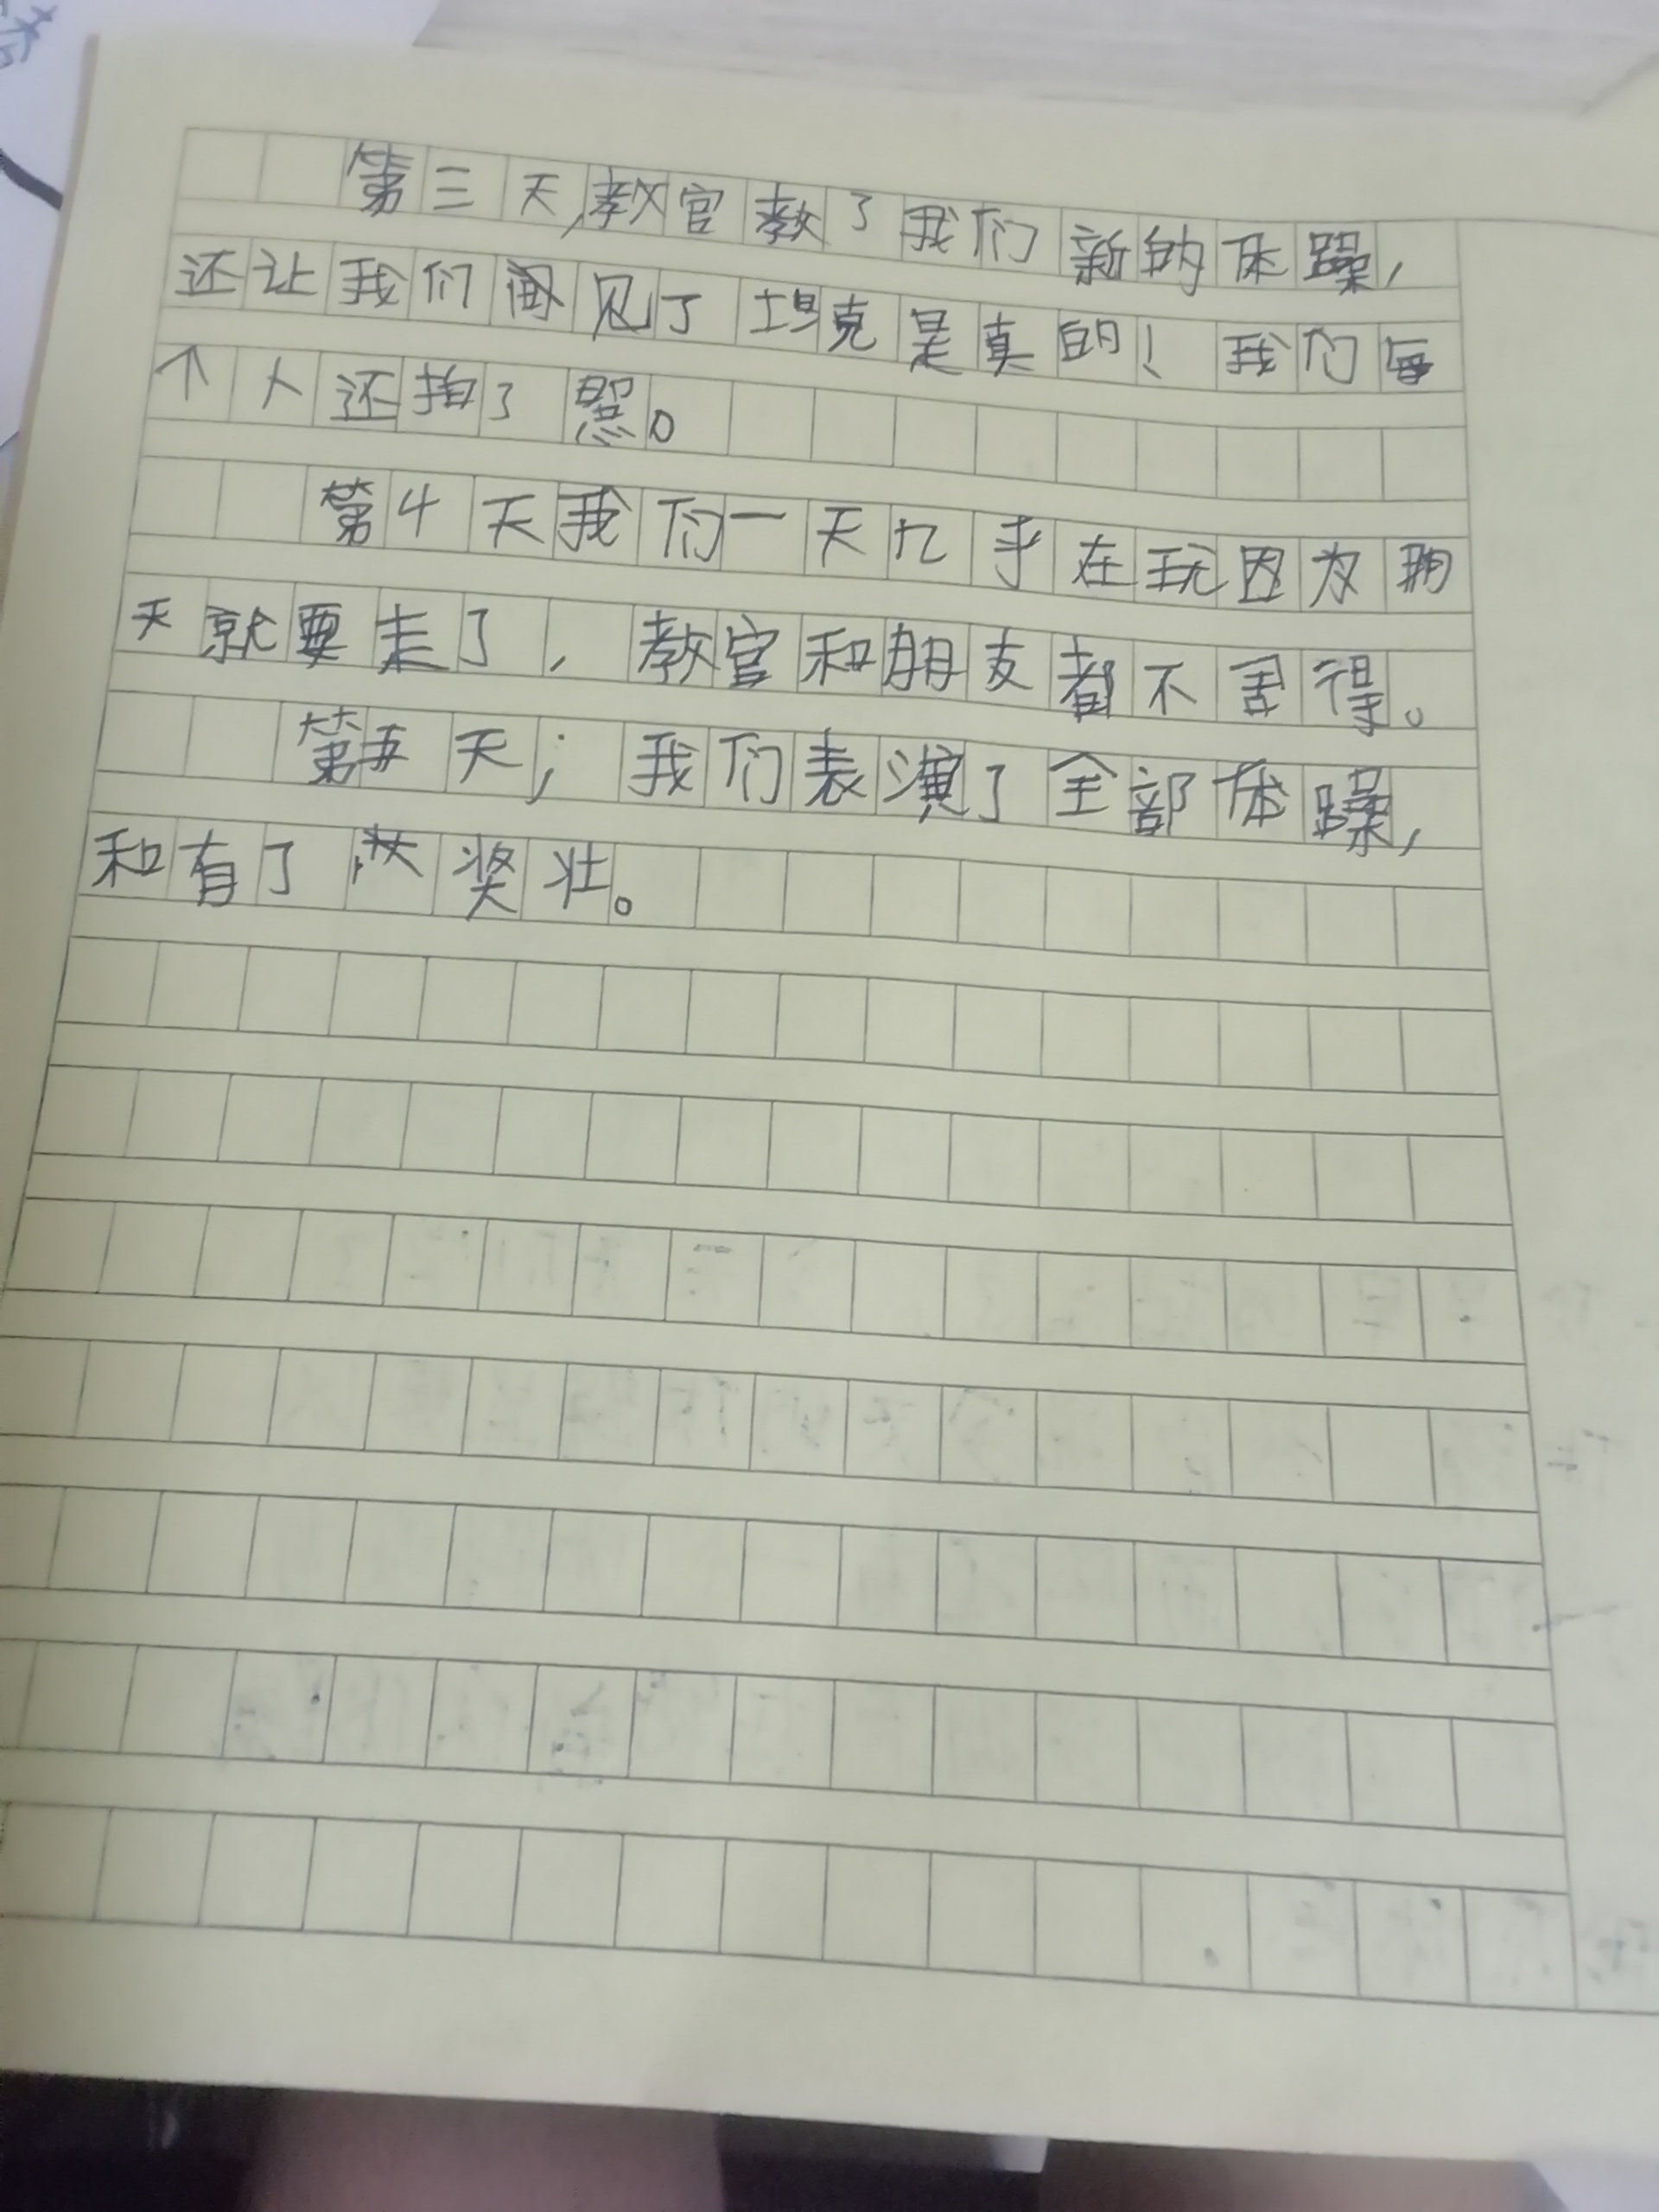 第三天,教官教了我们新的体躁,
还让我们见了坦克是真的!我们每
个人还拍了照。
第4天我们一天几乎在玩因为明
天就要走了,教官和朋友都不舍得。
第五天;我们表演了全部体躁,
和有了奖壮。